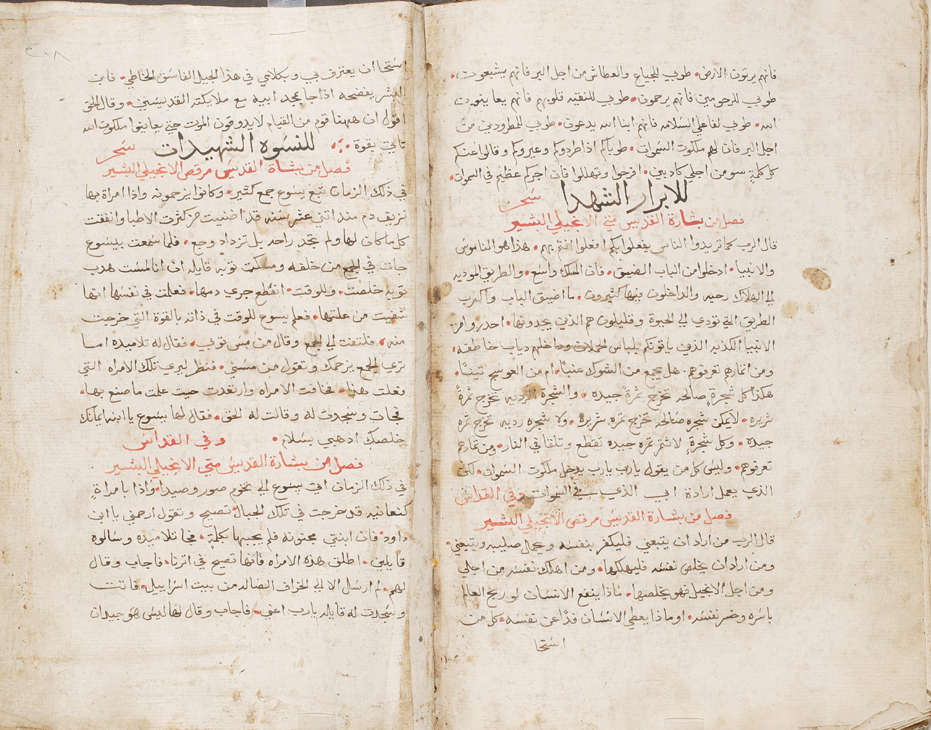 فانهم يرثون الارض • طوبى للجياع والعطاش من اجل البر فانهم يشبعون •
طوبى للرحومين فانهم يرحمون • طوبى للنقيه قلوبهم فانهم يعاينون
الله • طوبى لفاعلي السلامه فانهم ابنا الله يدعون • طوبى للمطرودين من
اجل البر فان لهم ملكوت السموات • طوباكم اذا طردوكم وعيروكم وقالوا عنكم
كل كلمة سو من اجلي كاذبين • افرحوا وتهللوا فان اجركم عظيم في السموات •
للابرار الشهدا سَحَر
فصل من بشارة القديس متي الانجيلي البشير
قال الرب كما تريدوا الناس يفعلوا بكم افعلوا انتم بهم • هذا هو الناموس
والانبيا • ادخلوا من الباب الضيق • فان المسلك واسع • والطريق الموديه
الي الهلاك رحبه والداخلون فيها كثيرون • ما اضيق الباب واكرب
الطريق التي تؤدي الي الحيوة وقليلون هم الذين يجدونها • احدروا من
الانبيا الكذبه الذين ياتونكم بلباس الحملان وداخلهم دياب خاطفه •
ومن اثمارهم تعرفوهم • هل يجمع من الشوك عنبا • ام من العوسج تينا •
هكذا كل شجرة صالحه تخرج ثمرة جيده • والشجره الرديه تخرج ثمرة
شريره • لا يمكن شجره صالحه تخرج ثمره شريره • ولا شجره رديه تخرج ثمره
جيده • وكل شجرة لا تثمر ثمره جيده تقطع وتلقا في النار • ومن ثمارهم
تعرفوهم • وليس كل من يقول يارب يارب يدخل ملكوت السموات • لكن
الذي يعمل ارادة ابي الذي في السموات • وفي القداس
فصل من بشارة القديس مرقص الانجيلي البشير
قال الرب من اراد ان يتبعني فليكفر بنفسه وحمل صليبه ويتبعني •
ومن اراد ان يخلص نفسه فليهلكها • ومن اهلك نفسه من اجلي
ومن اجل الانجيل فهو يخلصها • ماذا ينفع الانسان لو ربح العالم
باسره وخسر نفسه • او ماذا يعطي الانسان فدا عن نفسه • كل من
استحا
استحا ان يعترف بي وبكلامي في هذا الجيل الفاسق الخاطي • فابن
البشر يفضحه اذا جا بمجد ابيه مع ملايكته القديسين • وقال الحق
اقول ان ههنا قوم من القيام لا يدوقون الموت حتى يعاينوا ملكوت الله
تاتي بقوة • للنسوه الشهيدات سَحَر
فصل من بشارة القديس مرقص الانجيلي البشير
في ذلك الزمان تبع يسوع جمع كثير • وكانوا يزحمونه واذا امراة بها
نزيف دم مند اثني عشر سنه قد اضنيت من كثرت الاطبا وانفقت
كل ما كان لها ولم تجد راحه بل تزداد وجع • فلما سمعت بيسوع
جات في الجمع من خلفه ومسكت ثوبه قايله ان انا لمست هدب
ثوبه خلصت • وللوقت انقطع جري دمها • فعلمت في نفسها انها
شفيت من علتها • فعلم يسوع للوقت في ذاته بالقوة التي خرجت
منه • فلتفت الى الجمع وقال من مس ثوبي • فقال له تلاميده اما
تري الجمع يزحمك وتقول من مسني • فنظر ليري تلك الامراه التي
فعلت هذا • فخافت الامراه وارتعدت حيث علمت ما صنع بها •
فجات وسجدت له وقالت له الحق • فقال لها يسوع يا ابنه ايمانك
خلصك اذهبي بسلام • وفي القداس
فصل من بشارة القديس متي الانجيلي البشير
في ذلك الزمان اتي يسوع الي تخوم صور وصيدا • واذا بامراة
كنعانيه قد خرجت في تلك الجبال تصيح وتقول ارحمني يا ابن
داود • فان ابنتي مجنونه فلم يجيبها بكلمة • فجا تلاميده وسالوه
قايلين • اطلق هذه الامراه فانها تصيح في اثرنا • فاجاب وقال
لهم لم ارسل الا الي الخراف الضاله من بيت اسراييل • فاتت
وسجدت له قايله يارب اعني • فاجاب وقال لها ليس هو جيد ان